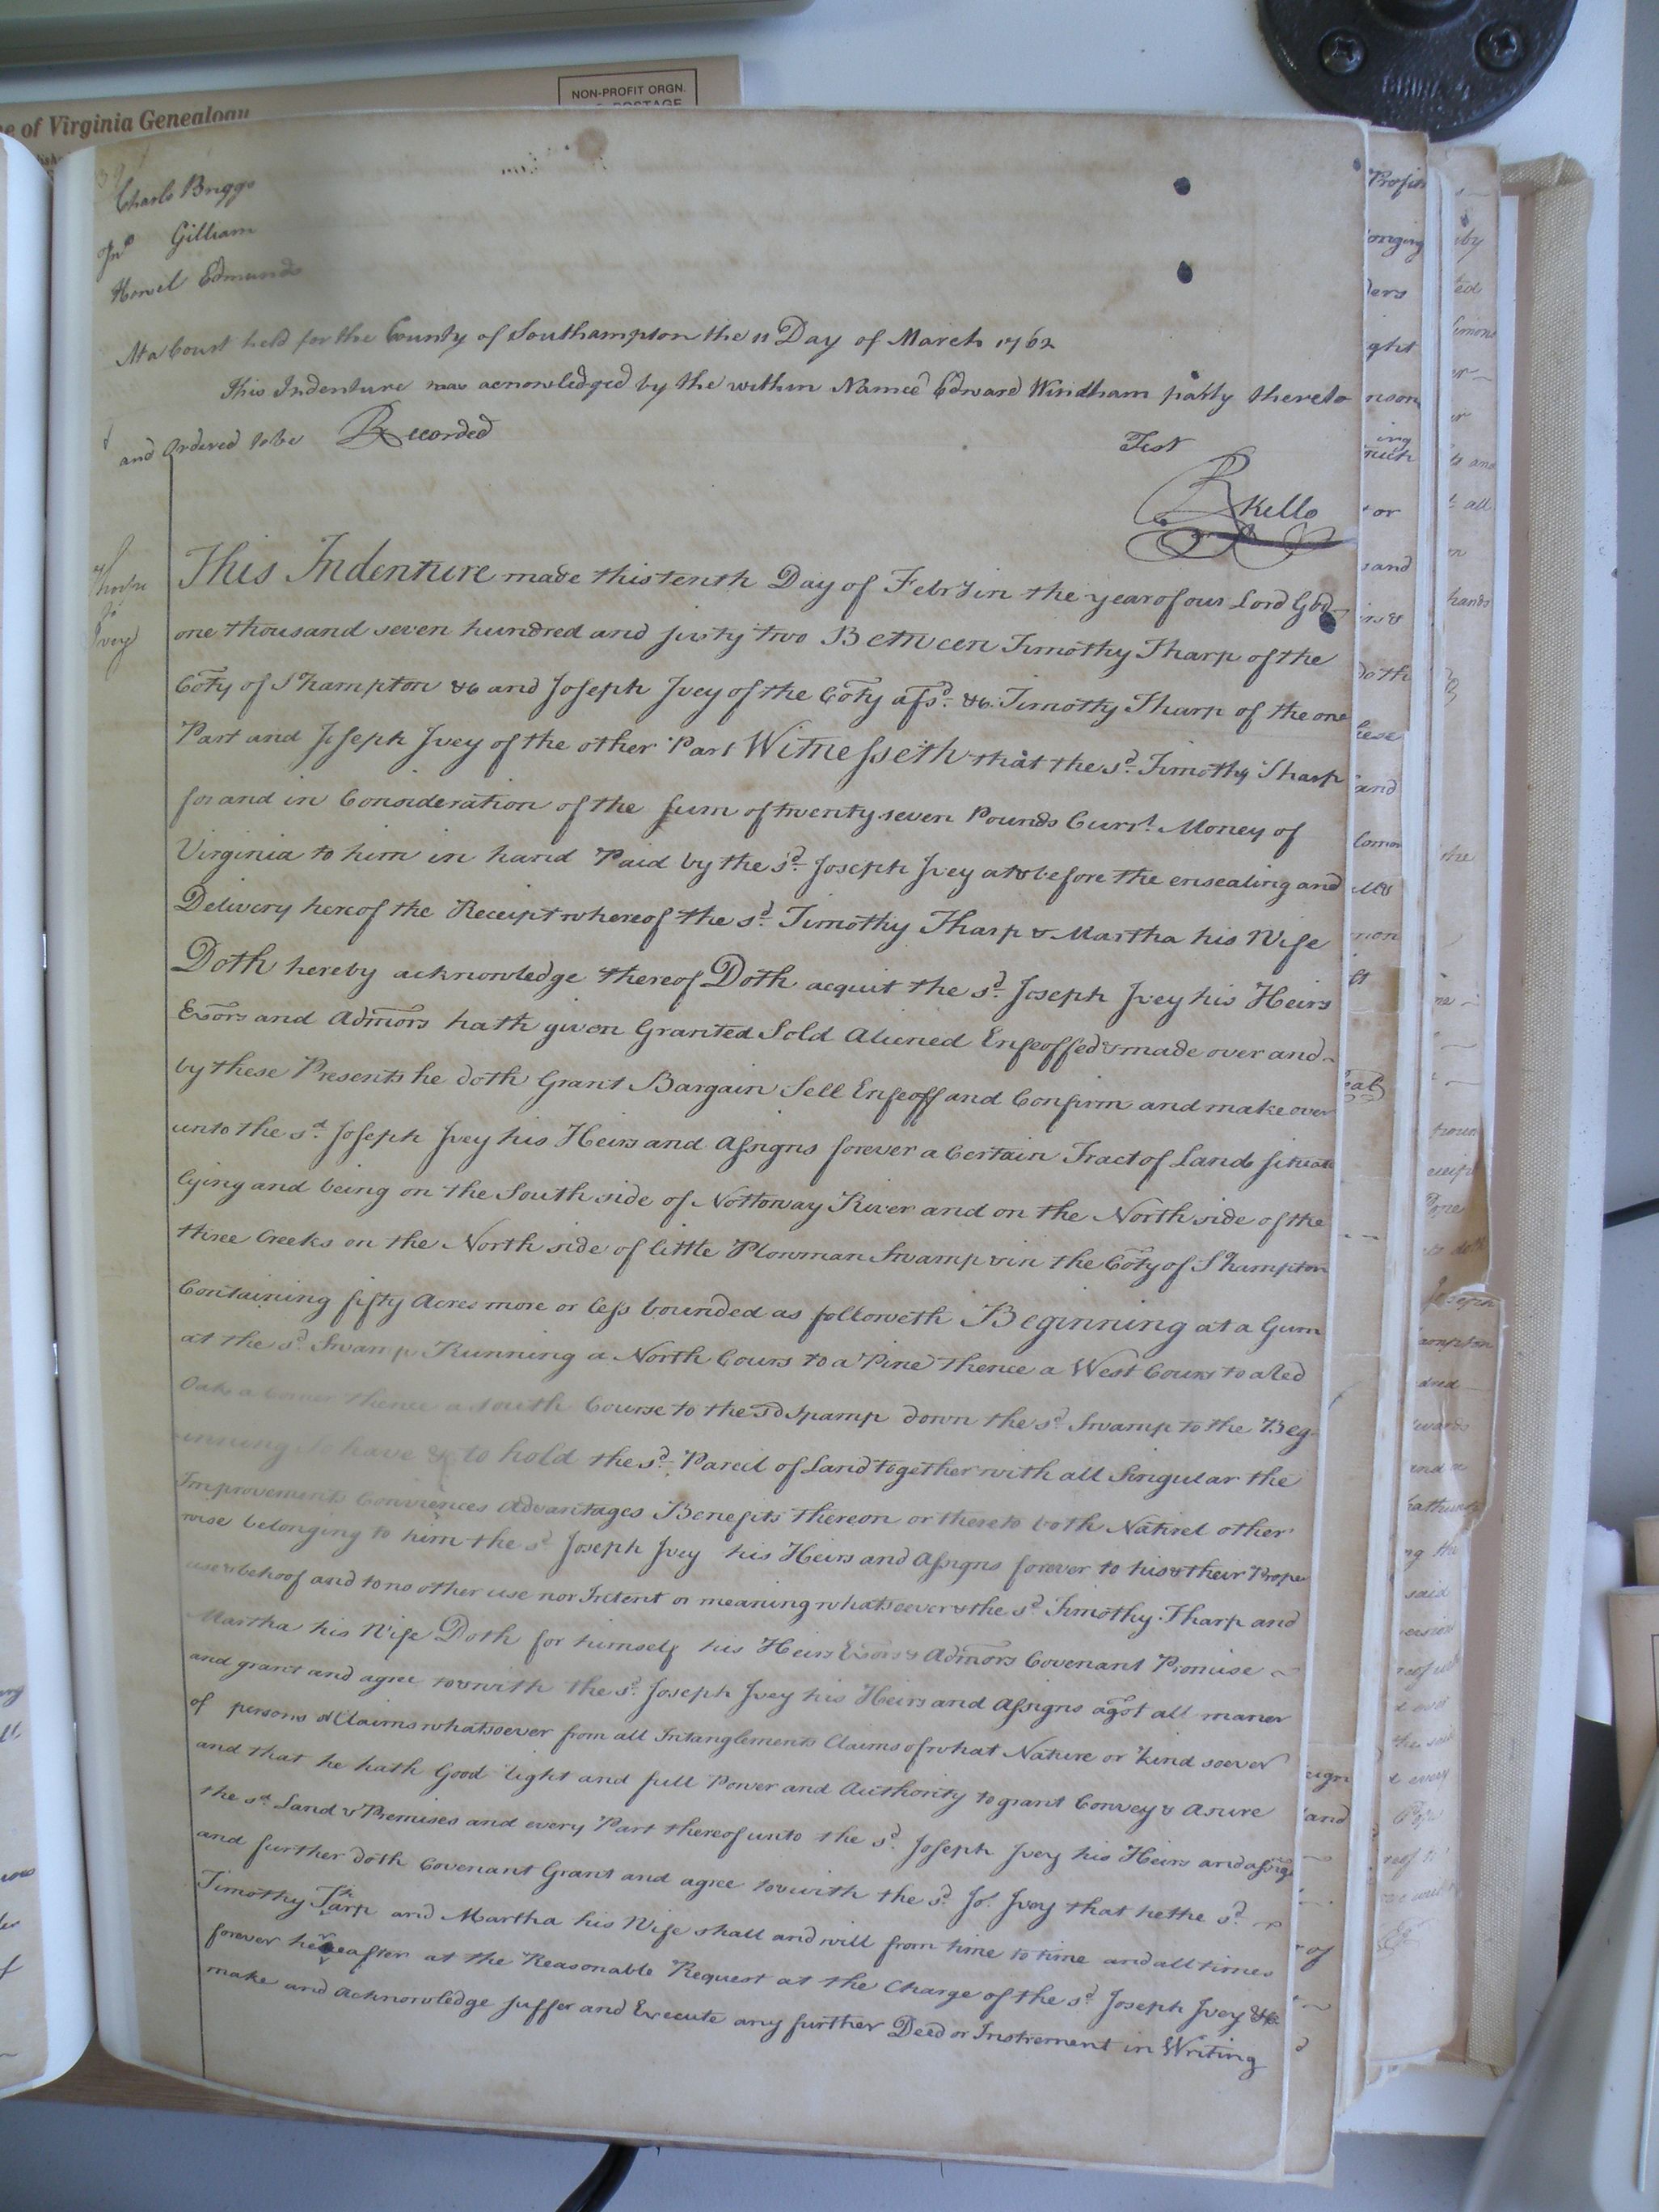 e of Virginia Genealogy
NON-PROFIT ORGN.
POSTAGE
Charls Briggs
Jno Gilliam
Howel Edmunds
At a Court held for the County of Southampton the 11 Day of March 1762
This Indenture was acnowledged by the within Named Edward Windham party thereto
and Ordered to be Recorded
Test
R Kello
to
Ivey
This Indenture made this tenth Day of Febry in the year of our Lord God
one thousand seven hundred and sixty two Between Timothy Tharp of the
Coty of Shampton &c and Joseph Ivey of the Coty afsd. &c. Timothy Tharp of the one
Part and Joseph Ivey of the other Part Witnesseth that the sd. Timothy Tharp
for and in Consideration of the sum of twenty seven Pounds Currt. Money of
Virginia to him in hand Paid by the sd. Joseph Ivey at & before the ensealing and
Delivery hereof the Receipt whereof the sd. Timothy Tharp & Martha his Wife
Doth hereby acknowledge thereof Doth acquit the sd. Joseph Ivey his Heirs
Exors and Admors hath given Granted Sold Aliened Enfeoffed & made over and
by these Presents he doth Grant Bargain Sell Enfeoff and Confirm and make over
unto the sd. Joseph Ivey his Heirs and Assigns forever a Certain Tract of Land situate
lying and being on the South side of Nottoway River and on the North side of the
three Creeks on the North side of little Plowman Swamp & in the Coty of Shampton
Containing fifty Acres more or less bounded as followeth Beginning at a Gum
at the sd. Swamp Running a North Cours to a Pine thence a West Cours to a Red
Oak a Corner thence a South Course to the sd Spamp down the sd. Swamp to the Beg-
inning to have & to hold the sd. Parcil of Land together with all Singular the
Improvements Conviences Advantages Benefits thereon or thereto both Natirel other
wise belonging to him the sd Joseph Ivey his Heirs and Assigns forever to his & their Prope
use & behoof and to no other use nor Intent or meaning whatsoever & the sd. Timothy Tharp and
Martha his Wife Doth for himself his Heirs Exors & Admors Covenant Promise
and grant and agree to & with the sd. Joseph Ivey his Heirs and Assigns agst all maner
of persons & Claims whatsoever from all Intanglements Claims of what Nature or kind soever
and that he hath Good light and full Power and Authority to grant Convey & Asure
the sd. Land & Premises and every Part thereof unto the sd. Joseph Ivey his Heirs and assigs
and further doth Covenant Grant and agree to & with the sd. Jos. Ivey that he the sd.
Timothy Tharp and Martha his Wife shall and will from time to time and all times
forever hereafter at the Reasonable Request at the Charge of the sd. Joseph Ivey &c
make and Acknowledge suffer and Execute any further Deed or Instrement in Writing